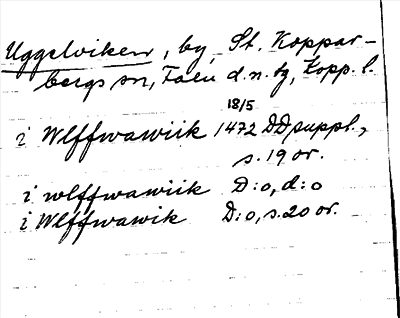 Uggelviken, by, St. Koppar-
bergs sn, Falu d.n. tg, Kopp. l.
18/5
i Wlffwawiik 1472 DD suppl.,
s. 19 or.
i wlffwawiik D:o, d:o
i Wlffwawik D:o, s. 20 or.